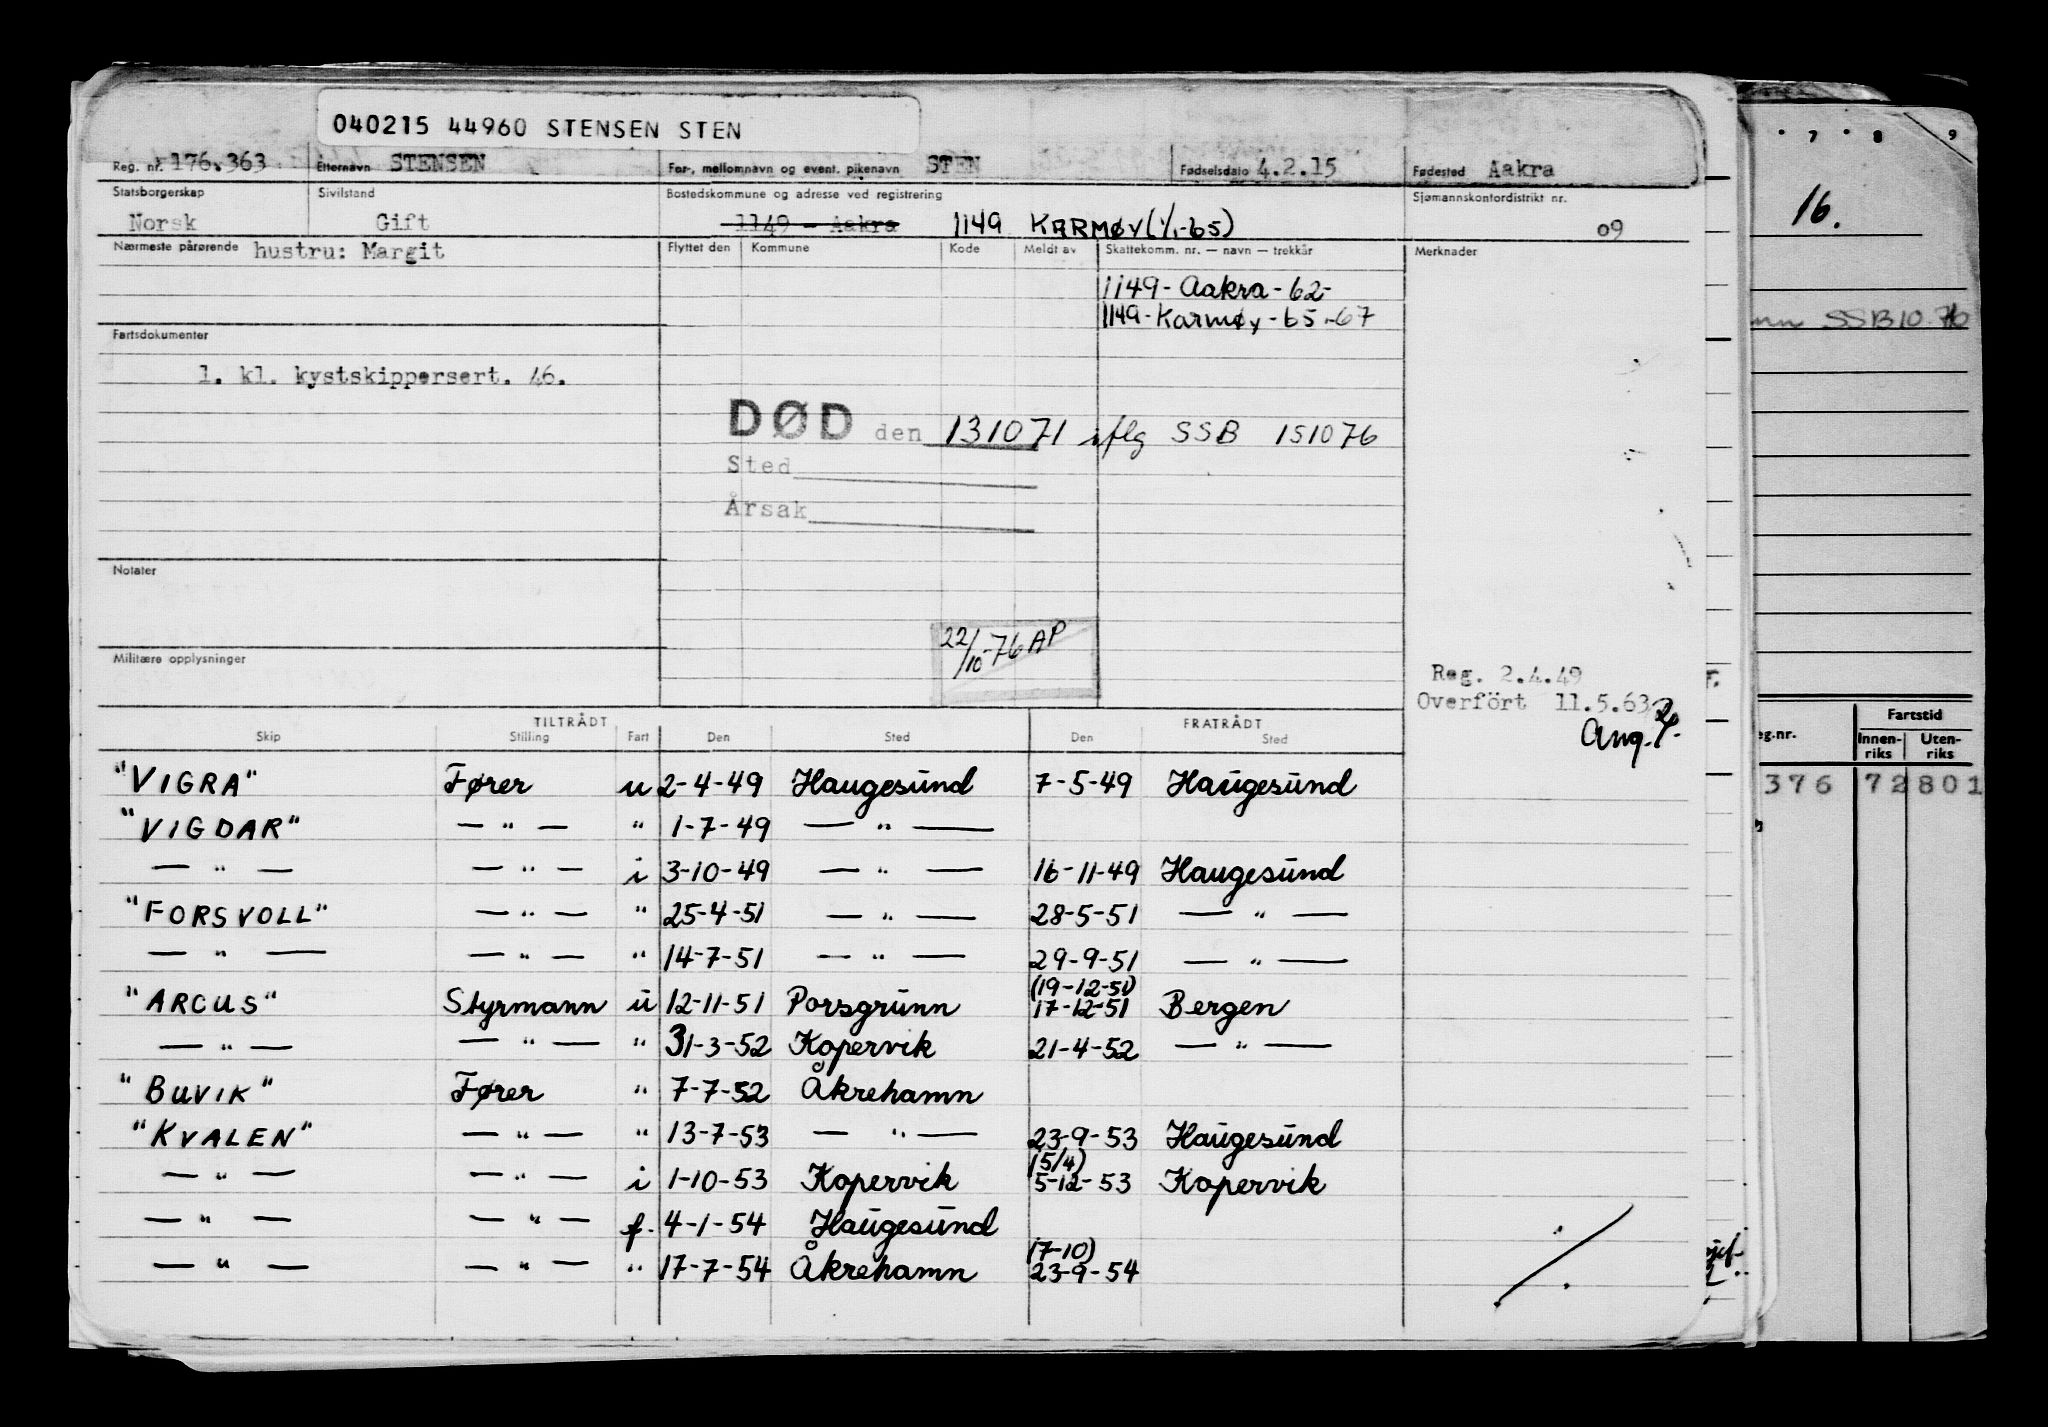 040215 44960 STENSEN STEN
Reg. nr. 176.363 Etternavn STENSEN For-, mellomnavn og event. pikenavn STEN Fødselsdato 4.2.15 Fødested Aakra
Statsborgerskap Sivilstand Bostedskommune og adresse ved registrering Sjømannskontordistrikt nr.
Norsk Gift 1149 - Aakra 1149 KARMØY (1/1-65) 09
Nærmeste pårørende hustru: Margit Flyttet den Kommune Kode Meldt av Skattekomm. nr. — navn — trekkår Merknader
1149 - Aakra - 62-
1149 - Karmøy - 65-67
Fartsdokumenter
1. kl. kystskippersert. 46.
DØD den 131071 iflg SSB 151076
Sted
Årsak
Notater
22/10-76 AP
Militære opplysninger
Reg. 2.4.49
Overfört 11.5.63
Aug.
TILTRÅDT FRATRÅDT
Skip Stilling Fart Den Sted Den Sted
"VIGRA" Fører u 2-4-49 Haugesund 7-5-49 Haugesund
"VIGDAR" — " — " 1-7-49 — " —
— " — — " — i 3-10-49 — " — 16-11-49 Haugesund
"FORSVOLL" — " — " 25-4-51 — " — 28-5-51 — " —
— " — — " — " 14-7-51 — " — 29-9-51 — " —
(19-12-51)
"ARCUS" Styrmann u 12-11-51 Porsgrunn 17-12-51 Bergen
— " — — " — " 31-3-52 Kopervik 21-4-52 — " —
"BUVIK" Fører " 7-7-52 Åkrehamn
"KVALEN" — " — " 13-7-53 — " — 23-9-53 Haugesund
(5/4)
— " — — " — i 1-10-53 Kopervik 5-12-53 Kopervik
— " — — " — f. 4-1-54 Haugesund
(17-10)
— " — — " — " 17-7-54 Åkrehamn 23-9-54
7 8 9
16.
SSB 10.76
Fartstid
eg.nr. Innen-riks Uten-riks
376 72 801